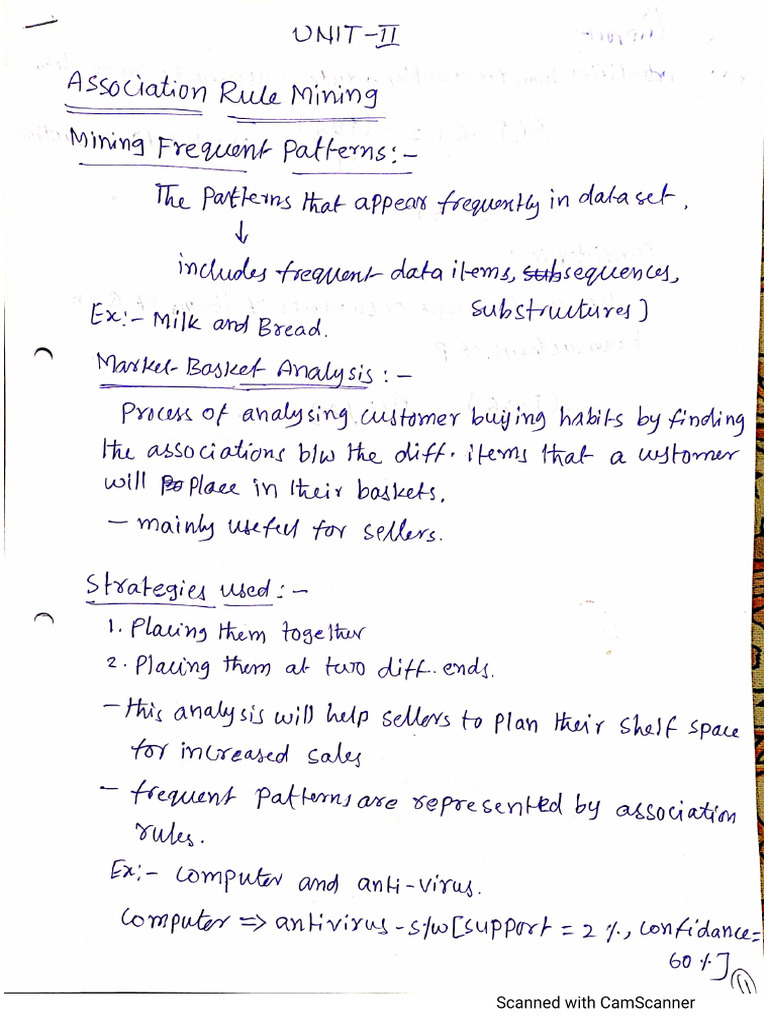 UNIT-II
Association Rule Mining
Mining Frequent Patterns:-
The Patterns that appear frequently in dataset.
↓
includes frequent data items, subsequences,
substructures]
Ex:- Milk and Bread.
Market-Basket Analysis:-
Process of analysing customer buying habits by finding
the associations b/w the diff. items that a customer
will place in their baskets.
- mainly useful for sellers.
Strategies used:-
1. Placing them together
2. Placing them at two diff. ends.
- this analysis will help sellers to plan their shelf space
for increased sales
- frequent patterns are represented by association
rules.
Ex:- computer and anti-virus.
Computer => antivirus-s/w [support = 2%, confidance=
60%]
(1)
Scanned with CamScanner